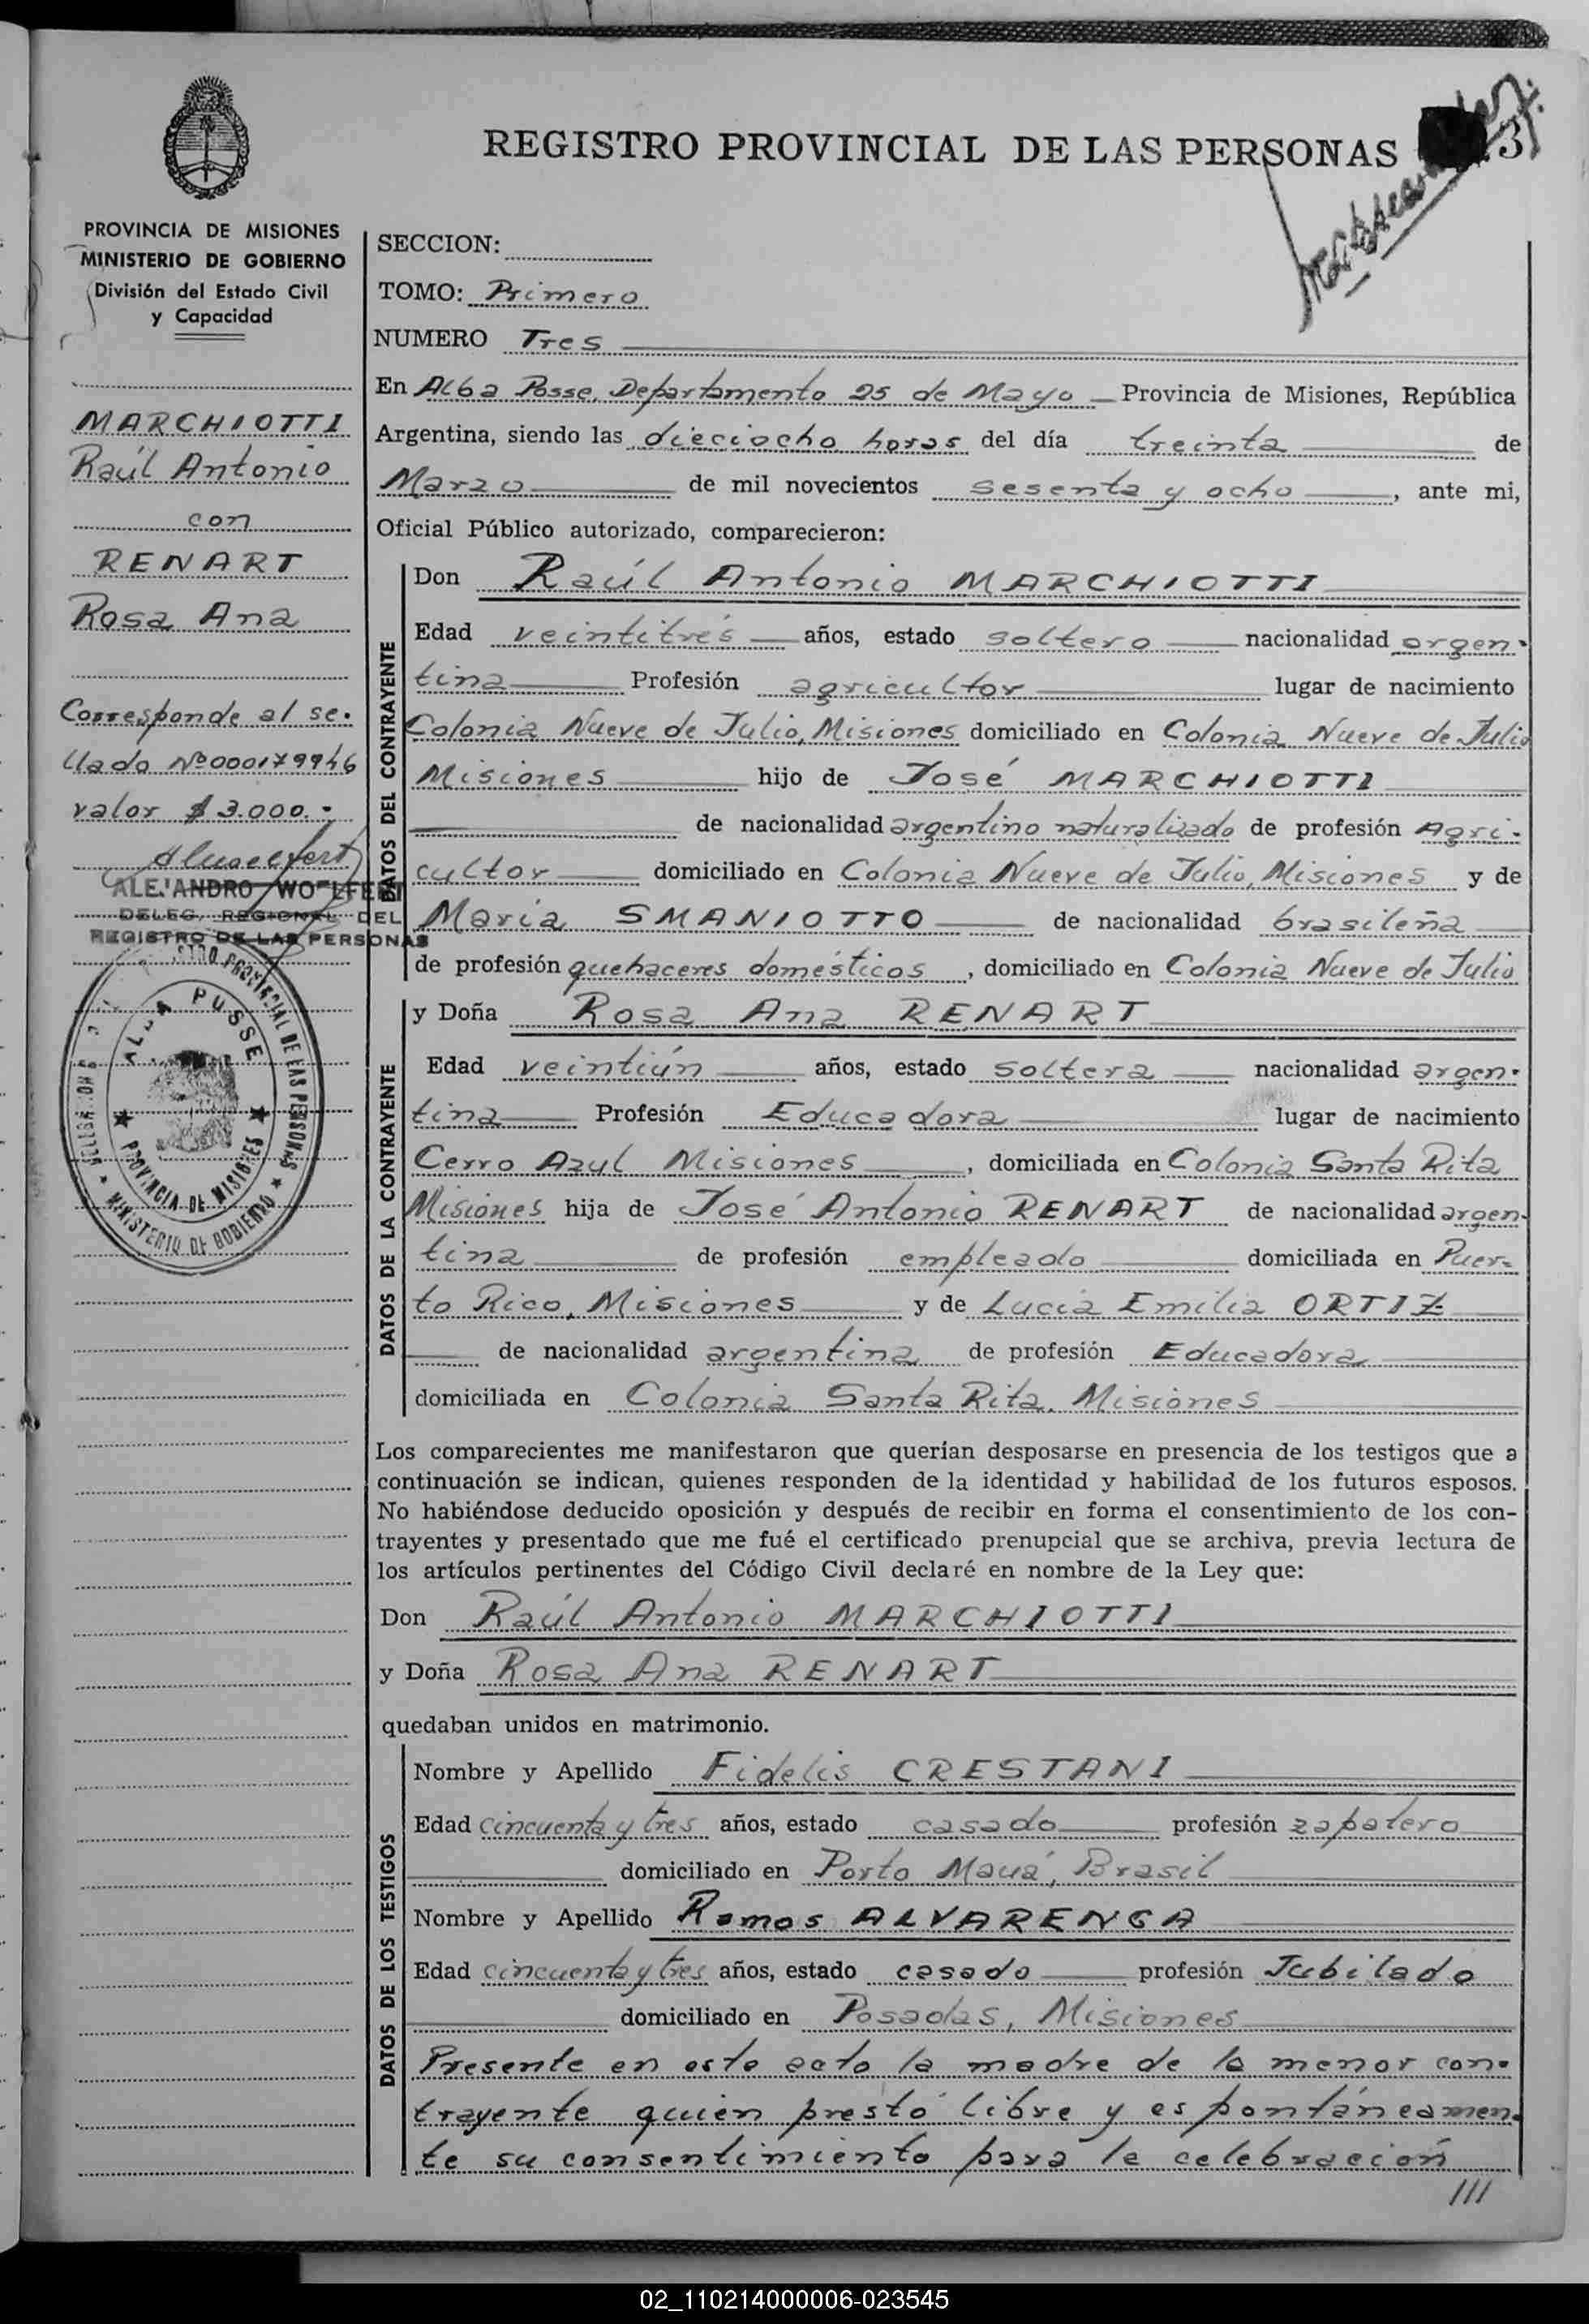 REGISTRO PROVINCIAL DE LAS PERSONAS
3
PROVINCIA DE MISIONES
MINISTERIO DE GOBIERNO
División del Estado Civil
y Capacidad
MARCHIOTTI
Raúl Antonio
con
RENART
Rosa Ana
Corresponde al se-
llado Nº 000179946
valor $ 3.000.-
ALEJANDRO WOLFERT
DELEG. REGIONAL DEL
REGISTRO DE LAS PERSONAS
ALBA POSSE
PROVINCIA DE MISIONES
MINISTERIO DE GOBIERNO
SECCION:
TOMO: Primero
NUMERO Tres
En Alba Posse, Departamento 25 de Mayo Provincia de Misiones, República
Argentina, siendo las dieciocho horas del día treinta de
Marzo de mil novecientos sesenta y ocho, ante mi,
Oficial Público autorizado, comparecieron:
DATOS DEL CONTRAYENTE
Don Raúl Antonio MARCHIOTTI
Edad veintitrés años, estado soltero nacionalidad argen-
tina Profesión agricultor lugar de nacimiento
Colonia Nueve de Julio, Misiones domiciliado en Colonia Nueve de Julio
Misiones hijo de José MARCHIOTTI
de nacionalidad argentino naturalizado de profesión Agri-
cultor domiciliado en Colonia Nueve de Julio, Misiones y de
María SMANIOTTO de nacionalidad brasileña
de profesión quehaceres domésticos, domiciliado en Colonia Nueve de Julio
DATOS DE LA CONTRAYENTE
y Doña Rosa Ana RENART
Edad veintiún años, estado soltera nacionalidad argen-
tina Profesión Educadora lugar de nacimiento
Cerro Azul Misiones, domiciliada en Colonia Santa Rita
Misiones hija de José Antonio RENART de nacionalidad argen-
tina de profesión empleado domiciliada en Puer-
to Rico, Misiones y de Lucía Emilia ORTIZ
de nacionalidad argentina de profesión Educadora
domiciliada en Colonia Santa Rita, Misiones
Los comparecientes me manifestaron que querían desposarse en presencia de los testigos que a
continuación se indican, quienes responden de la identidad y habilidad de los futuros esposos.
No habiéndose deducido oposición y después de recibir en forma el consentimiento de los con-
trayentes y presentado que me fué el certificado prenupcial que se archiva, previa lectura de
los artículos pertinentes del Código Civil declaré en nombre de la Ley que:
Don Raúl Antonio MARCHIOTTI
y Doña Rosa Ana RENART
quedaban unidos en matrimonio.
DATOS DE LOS TESTIGOS
Nombre y Apellido Fidelis CRESTANI
Edad cincuenta y tres años, estado casado profesión zapatero
domiciliado en Porto Mauá, Brasil
Nombre y Apellido Ramos ALVARENGA
Edad cincuenta y tres años, estado casado profesión Jubilado
domiciliado en Posadas, Misiones
Presente en este acto la madre de la menor con-
trayente quien prestó libre y espontáneamen-
te su consentimiento para la celebración
///
02_110214000006-023545